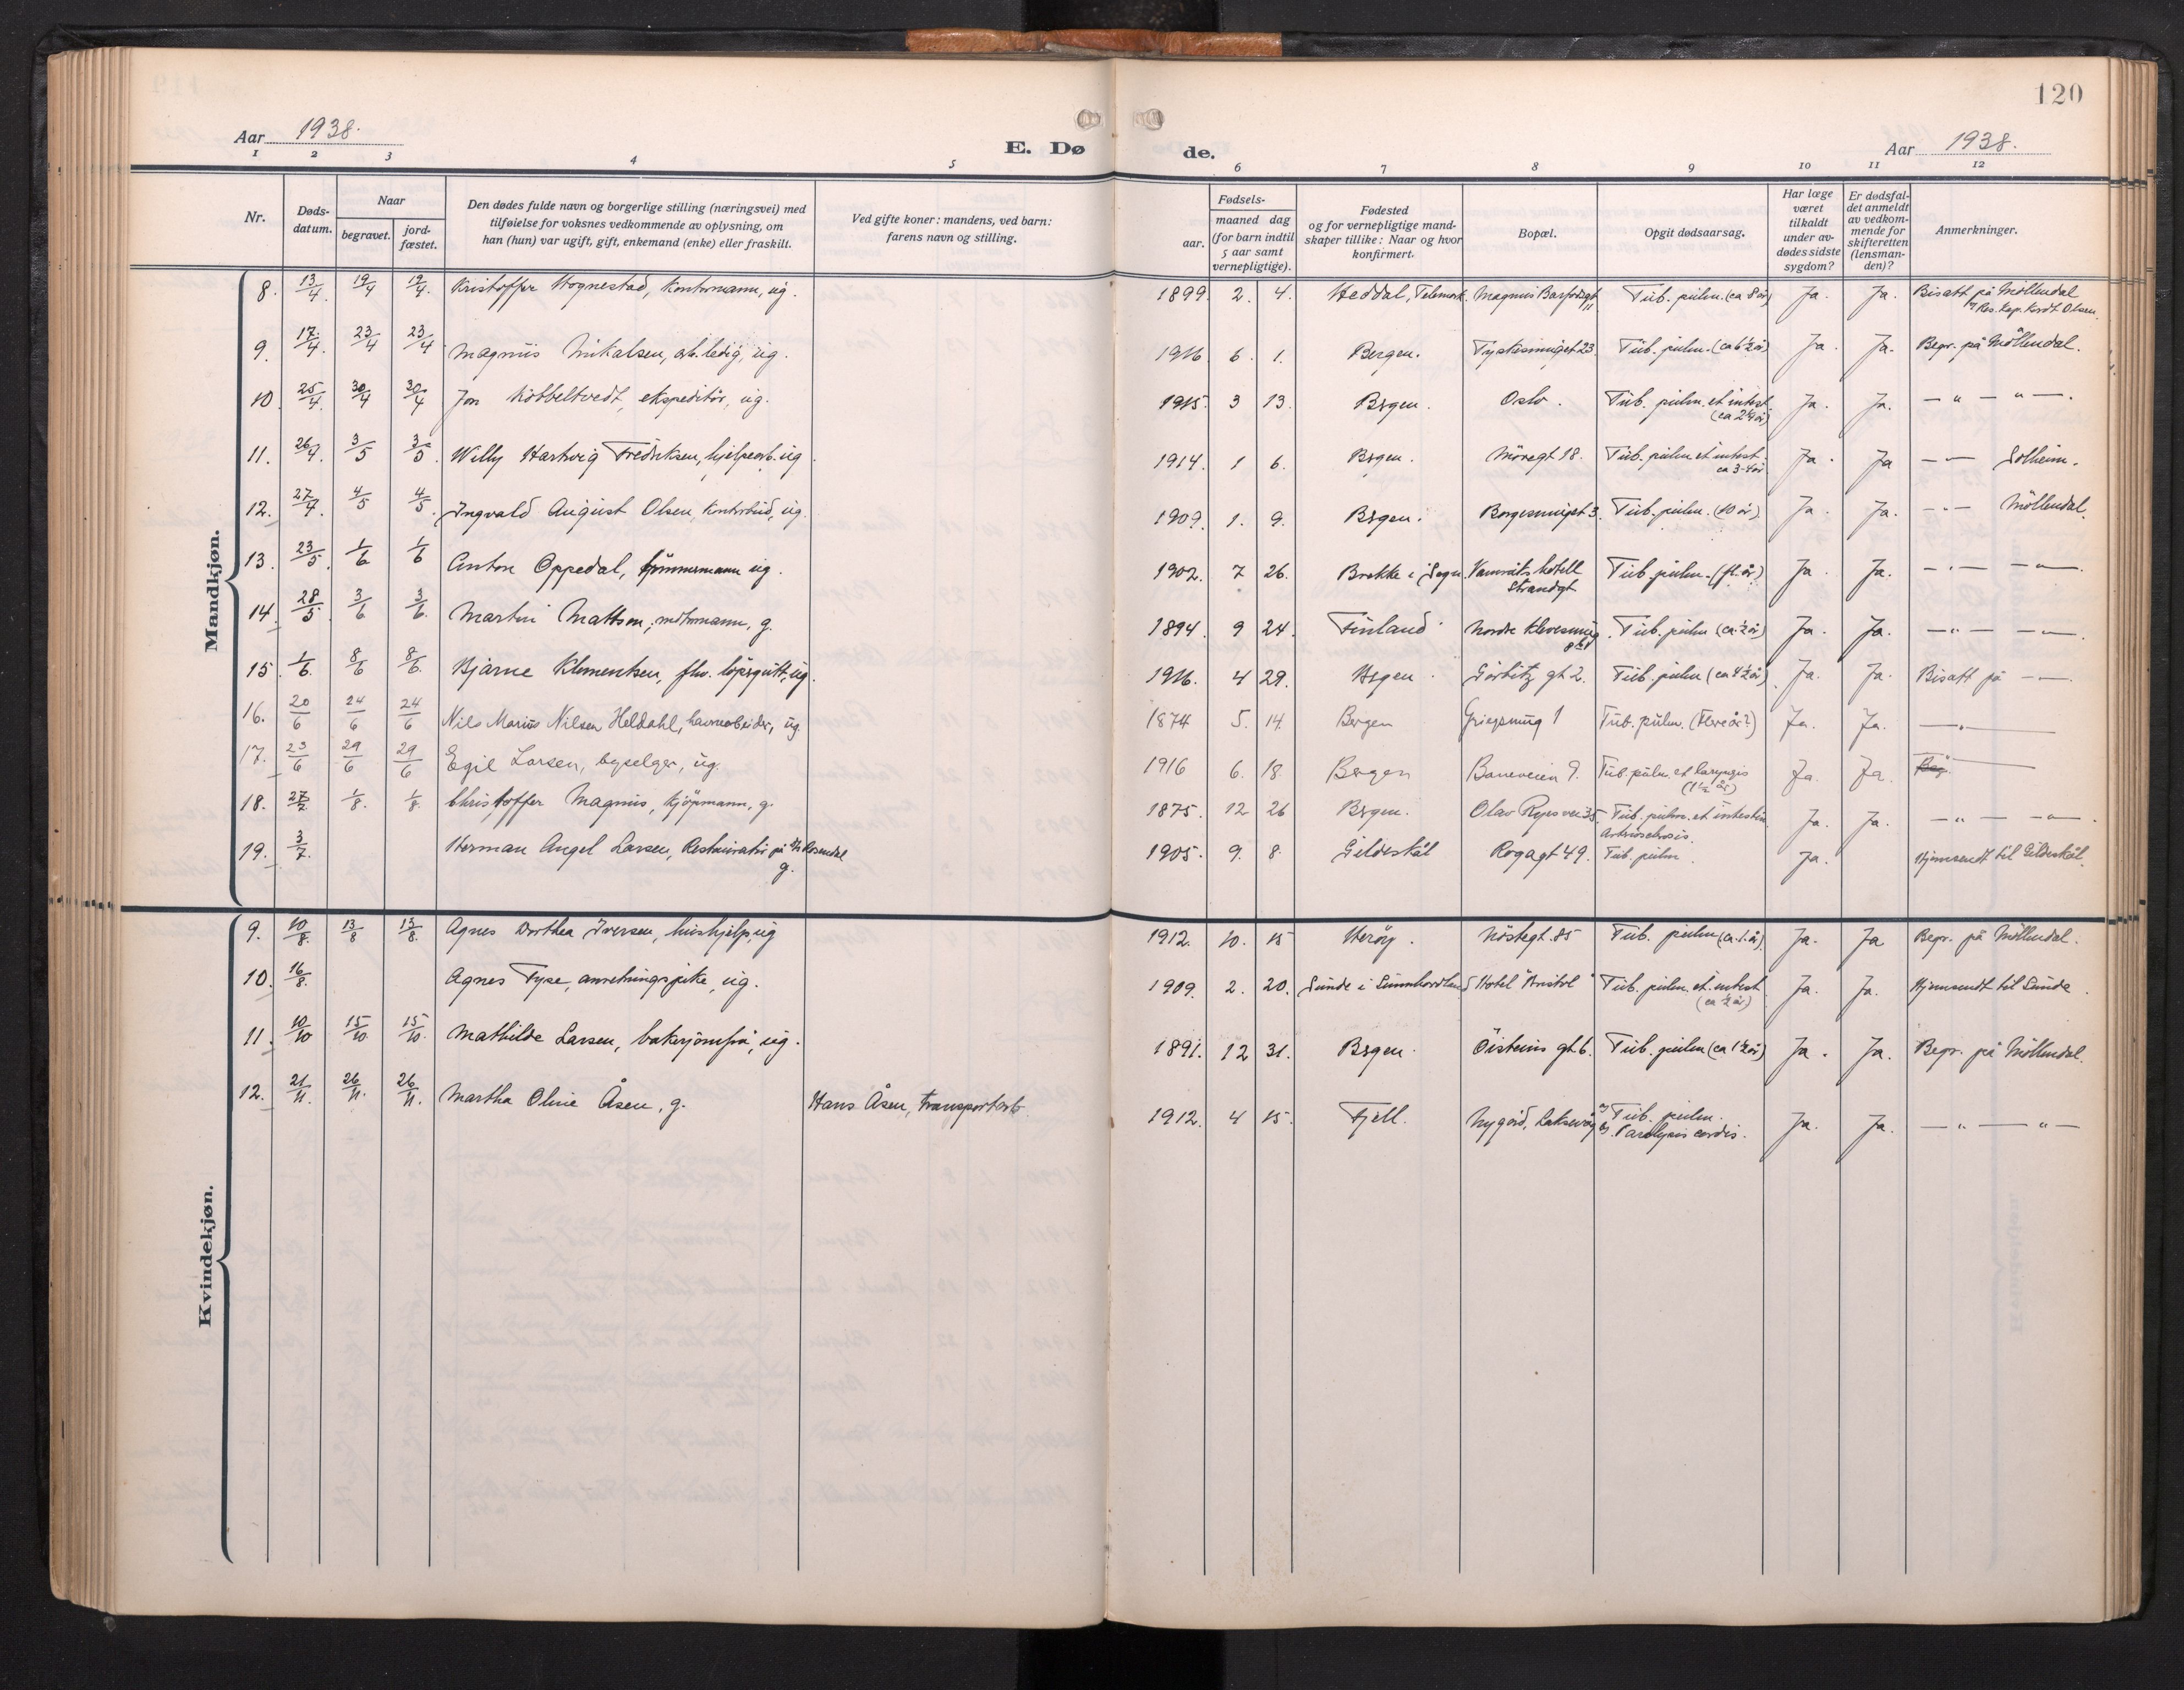 120
Aar 1938.
E. Dø de.
Aar 1938.
1 2 3 4 5 6 7 8 9 10 11 12
Nr.
Døds-
datum.
Naar
begravet.
jord-
fæstet.
Den dødes fulde navn og borgerlige stilling (næringsvei) med
tilføielse for voksnes vedkommende av oplysning, om
han (hun) var ugift, gift, enkemand (enke) eller fraskilt.
Ved gifte koner: mandens, ved barn:
farens navn og stilling.
Fødsels-
aar.
maaned dag
(for barn indtil
5 aar samt
vernepligtige).
Fødested
og for vernepligtige mand-
skaper tillike: Naar og hvor
konfirmert.
Bopæl.
Opgit dødsaarsag.
Har læge
været
tilkaldt
under av-
dødes sidste
sygdom?
Er dødsfal-
det anmeldt
av vedkom-
mende for
skifteretten
(lensman-
den)?
Anmerkninger.
Mandkjøn.
8. 13/4 19/4 19/4. Kristoffer Hognestad, kontormann, ug. 1899. 2. 4. Heddal, Telemark. Magnus Barfodsgt 11 Tub. pulm. (ca 8 år) Ja. Ja. Bisatt på Möllendal
v/ Res. kap. Kordt Olsen.
9. 17/4. 23/4 23/4 Magnus Mikalsen, arb.ledig, ug. 1916. 6. 1. Bergen. Tyskesmuget 23. Tub. pulm. (ca 6½ år) Ja. Ja. Begr. på Möllendal.
10. 25/4. 30/4 30/4 Jon Kobbeltvedt, ekspeditör, ug. 1915. 3 13. Bergen. Oslo. Tub. pulm. et intest. Ja. Ja. — " — " —.
11. 26/4. 3/5 3/5. Willy Hartvig Fredriksen, hjelpearb. ug. 1914. 1 6. Bergen. Möregt 18. Tub. pulm. et intest. Ja. Ja — " — Solheim.
ca 3-4 år
12. 27/4. 4/5 4/5. Ingvald August Olsen, kontorbud, ug. 1909. 1. 9. Bergen. Borgesmuget 3. Tub. pulm. (10 år). Ja. Ja. — " — Möllendal.
13. 23/5. 1/6 1/6 Anton Oppedal, tömmermann ug. 1902. 7 26. Brekke i Sogn. hotell Tub. pulm. (fl. år) Ja. Ja. — " — — " —.
Strandgt
14. 28/5. 3/6 3/6. Martin Mattson, motormann, g. 1894. 9 24. Finland. Nordre Tub. pulm (ca. ½ år) Ja. Ja. — " — — " —.
15. 1/6. 8/6 8/6. Bjarne Klementsen, fhv. löpsgutt, ug. 1916. 4 29. Bergen. Görbitz gt 2. Tub. pulm (ca 4½ år). Ja. Ja. Bisatt på — " —.
16. 20/6 24/6 24/6 Nils Marius Nilsen Heldahl, havnearbeider, ug. 1874 5. 14. Bergen Griegsmug 1 Tub. pulm. (flere år?) Ja. Ja. — " —
17. 23/6 29/6 29/6 Egil Larsen, byselger, ug. 1916 6. 18. Bergen Baneveien 9. Tub. pulm. et laryngis Ja. Ja. Beg.
(1½ år)
18. 27/7 1/8. 1/8. Christoffer Magnus, kjöpmann, g. 1875. 12 26 Bergen. Olav Ryes vei 35. Tub. pulm. et intestin. Ja. Ja. — " — — " —.
Arteriosclerosis.
19. 3/7. Herman Angel Larsen, Restauratör på Rosendal 1905. 9. 8. Gildeskål Rogagt 49. Tub. pulm. Ja. Hjemsendt til Gildeskål.
g.
Kvindekjøn.
9. 10/8. 13/8 13/8. Agnes Dorthea Iversen, hushjelp, ug 1912. 10. 15 Heröy. Nöstegt. 85 Tub. pulm (ca. 1. år). Ja. Ja Begr. på Möllendal.
10. 16/8. Agnes Tyse, anretningspike, ug. 1909. 2. 20. Sunde i Sunnhordland Hotel "Bristol" Tub. pulm. et. intest. Ja. Ja. Hjemsendt til Sunde.
(ca ½ år)
11. 10/10 15/10 15/10. Mathilde Larsen, bakerjomfru, ug. 1891. 12 31. Bergen. Öisteins gt. 6. Tub. pulm (ca 1½ år) Ja. Ja. Begr. på Möllendal.
12. 21/11. 26/11. 26/11. Martha Oline Åsen, g. Hans Åsen, transportarb. 1912. 4 15. Fjell. Nygård, Laksevåg a) Tub. pulm. Ja. Ja. — " — " —
b). Paralysis cordis.